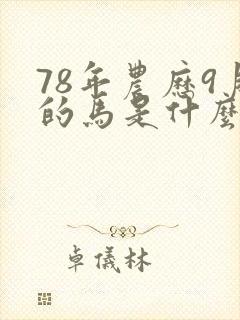 78年農历9
的馬是什麼
卓儀林